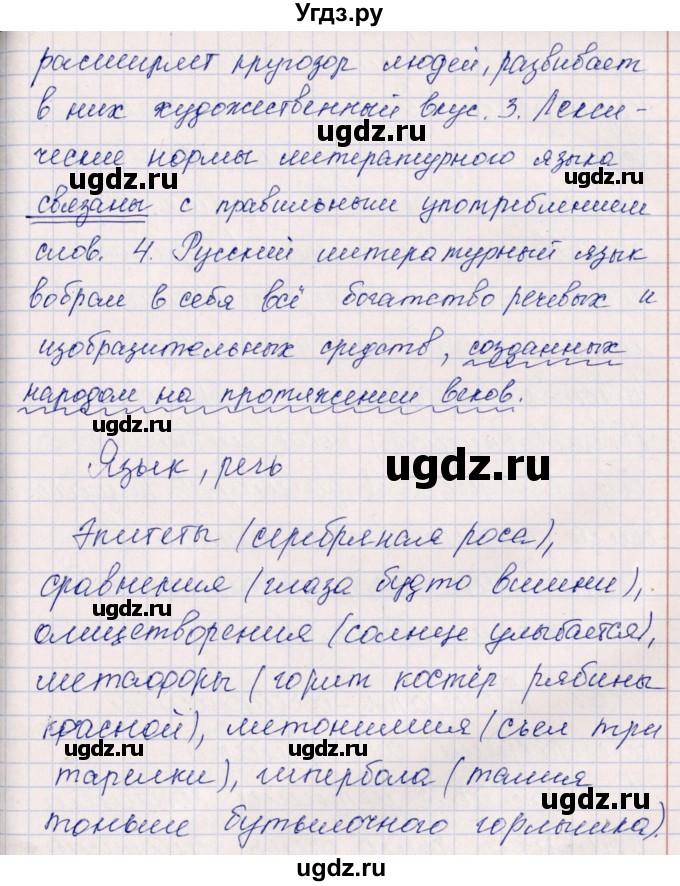 Угдз.ру
расширяет кругозор людей, развивает
в них художественный вкус. 3. Лекси-
ugdz.ru
ческие нормы литературного языка
ugdz.ru
связаны с правильным употреблением
слов. 4. Русский литературный язык
ugdz.ru
вобрал в себя всё богатство речевых и
изобразительных средств, созданных
народом на протяжении веков.
ugdz.ru
Язык, речь
ugdz.ru
Эпитеты (серебряная роса),
сравнения (глаза будто вишни),
ugdz.ru
олицетворения (солнце улыбается),
метафоры (горит костёр рябины
красной), метонимия (съел три
ugdz.ru ugdz.ru
тарелки), гипербола (талия
ugdz.ru
тоньше бутылочного горлышка).
ugdz.ru